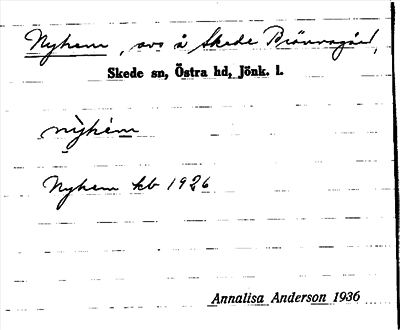 Nyhem, avs å Skede Prästgård,
Skede sn, Östra hd, Jönk. l.
nỳhèm
Nyhem kb 1926
Annalisa Anderson 1936